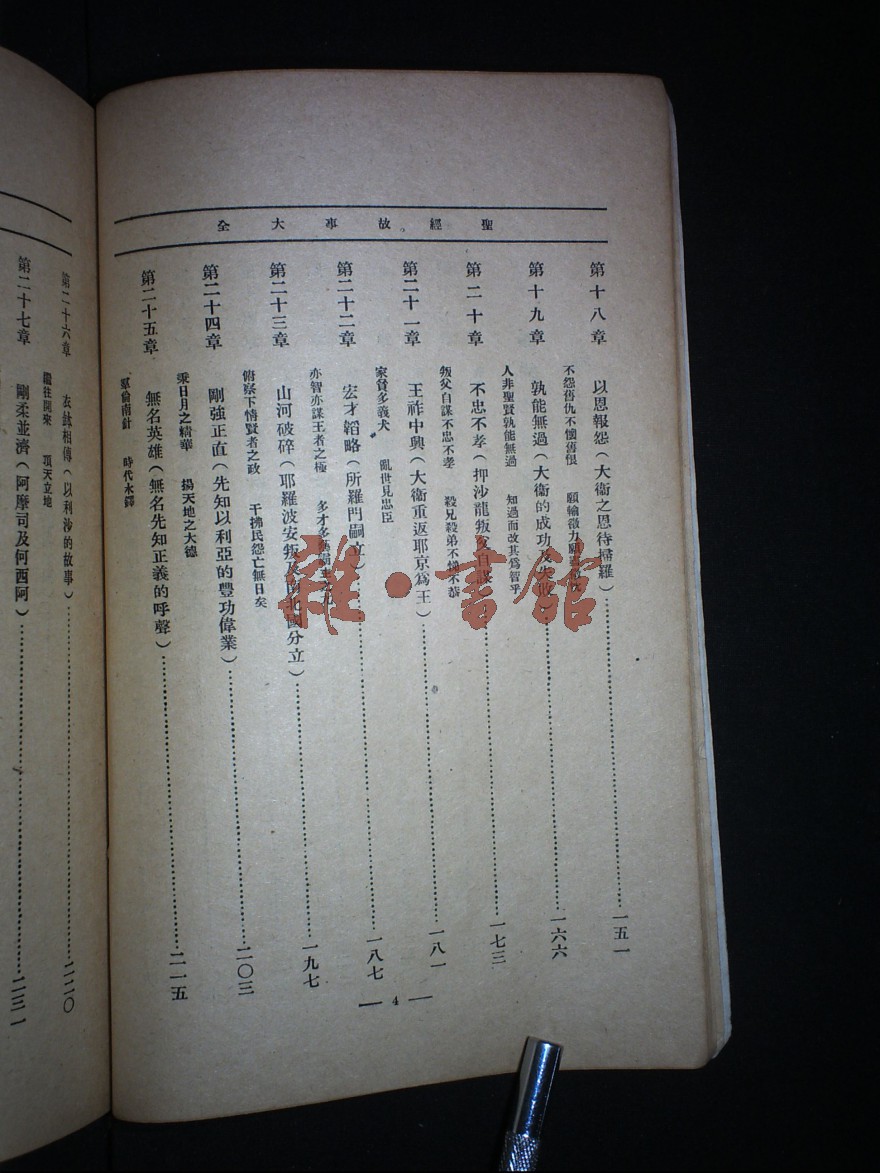 聖經故事大全
第十八章 以恩報怨（大衞之恩待掃羅）……一五一
不怨舊仇不懷舊恨 願輸微力願
第十九章 孰能無過（大衞的成功及失敗……一六六
人非聖賢孰能無過 知過而改其爲智乎
第二十章 不忠不孝（押沙龍叛父自謀……一七三
叛父自謀不忠不孝 殺兄殺弟不悌不恭
第二十一章 王祚中興（大衞重返耶京爲王）……一八一
家貧多義犬 亂世見忠臣
第二十二章 宏才韜略（所羅門嗣立）……一八七
亦智亦謀王者之極 多才多藝
第二十三章 山河破碎（耶羅波安叛及南北國分立）……一九七
俯察下情賢者之政 干拂民怨亡無日矣
第二十四章 剛強正直（先知以利亞的豐功偉業）……二〇三
秉日月之精華 揚天地之大德
第二十五章 無名英雄（無名先知正義的呼聲）……二一五
羣倫南針 時代木鐸
— 4 —
第二十六章 衣鉢相傳（以利沙的故事）……二二〇
繼往開來 頂天立地
第二十七章 剛柔並濟（阿摩司及何西阿）……二三一
雅·書館